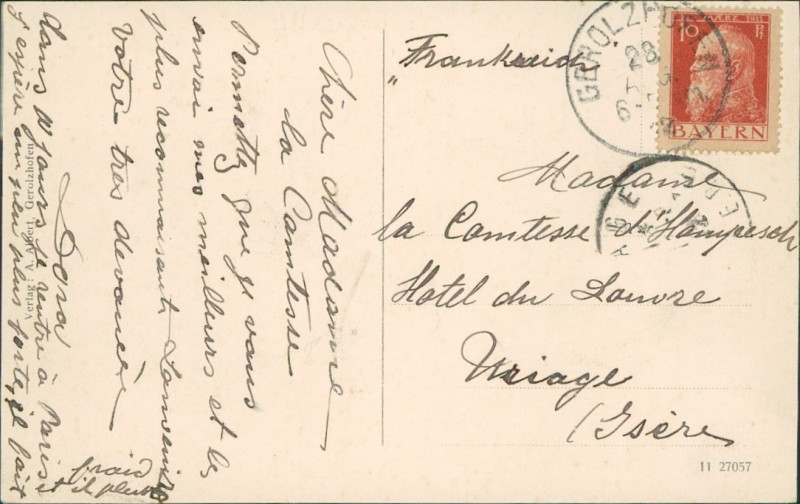 Chère Madame
la Comtesse
Permettez que je vous
envoi mes meilleurs et les
plus reconnaissants
Votre très devouée
Dora
dans 8 jours je rentre à Paris et
j'espère un peu plus forte, il fait
froid
et il pleut
Verlag: A. Albert, Gerolzhofen
"Frankreich"
GEROLZHOFEN
28
MÄRZ 1911
10 Pf
BAYERN
Madame
la Comtesse d'Hompesch
Hôtel du Louvre
Uriage
(Isère)
11 27057